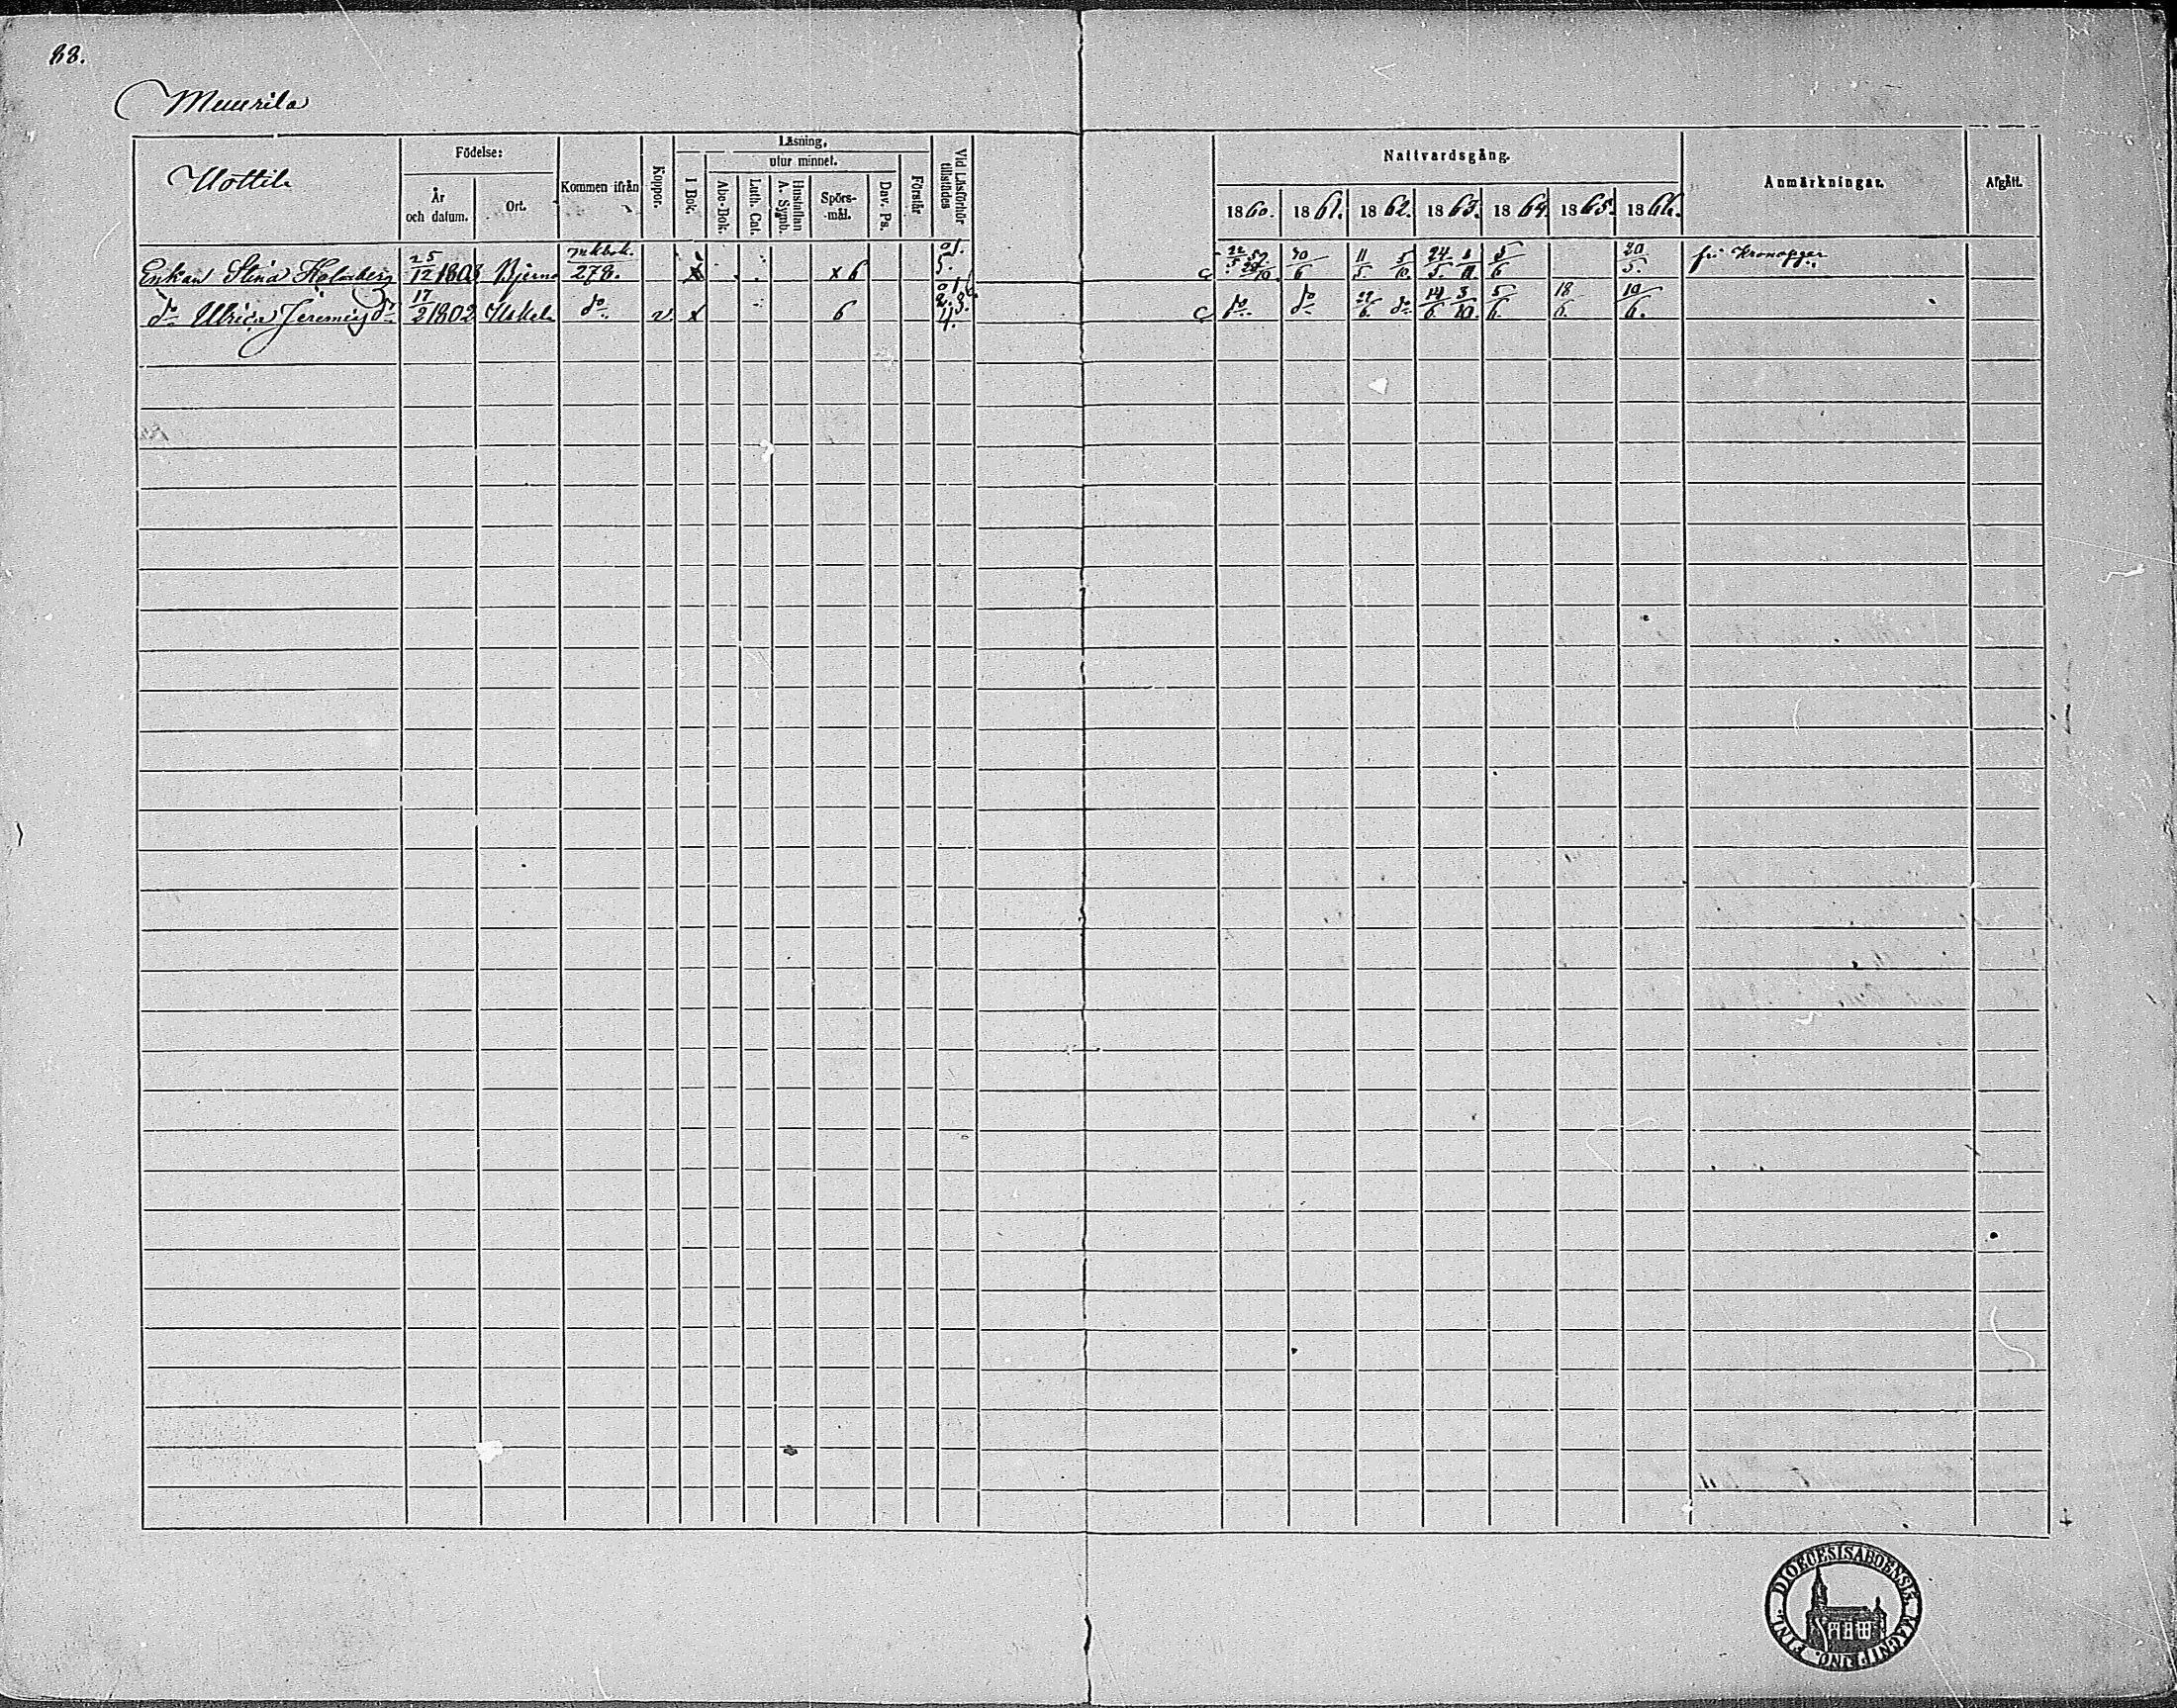 88.
Muurila
Uottila
Födelse:
År och datum.
Ort.
Kommen ifrån
Koppor.
Läsning,
I Bok.
utur minnet.
Abc-Bok.
Luth. Cat.
Hustaflan A. Symb.
Spörs-mål.
Dav. Ps.
Förstår
Vid Läsförhör tillstädes
Nattvardsgång.
1860. 1861. 1862. 1863. 1864. 1865. 1866.
Anmärkningar.
Afgått.
Enkan Stina Holmberg 25/12 1803 Bjerno 278. x 6 30/6 11/5 5/10 24/5 20/5. fri Kronopgar
do Ulrica Jeremiæ dr 17/2 1802 Uskela do v x 6 C do do do 14/6 3/10 5/6. 18/6. 10/6.
DIOECESIS ABOENSIS. MAGNI PRINC. FINL.